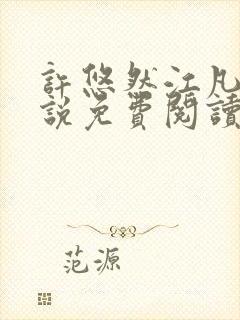 許悠然江凡
說免費閱讀
范源